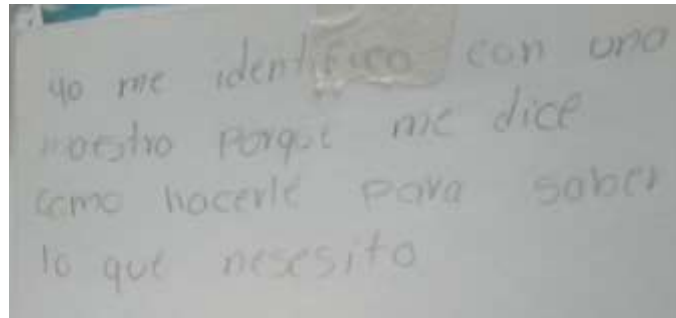 yo me identifico con una
maestro porque me dice
como hacerle para saber
lo que nesesito